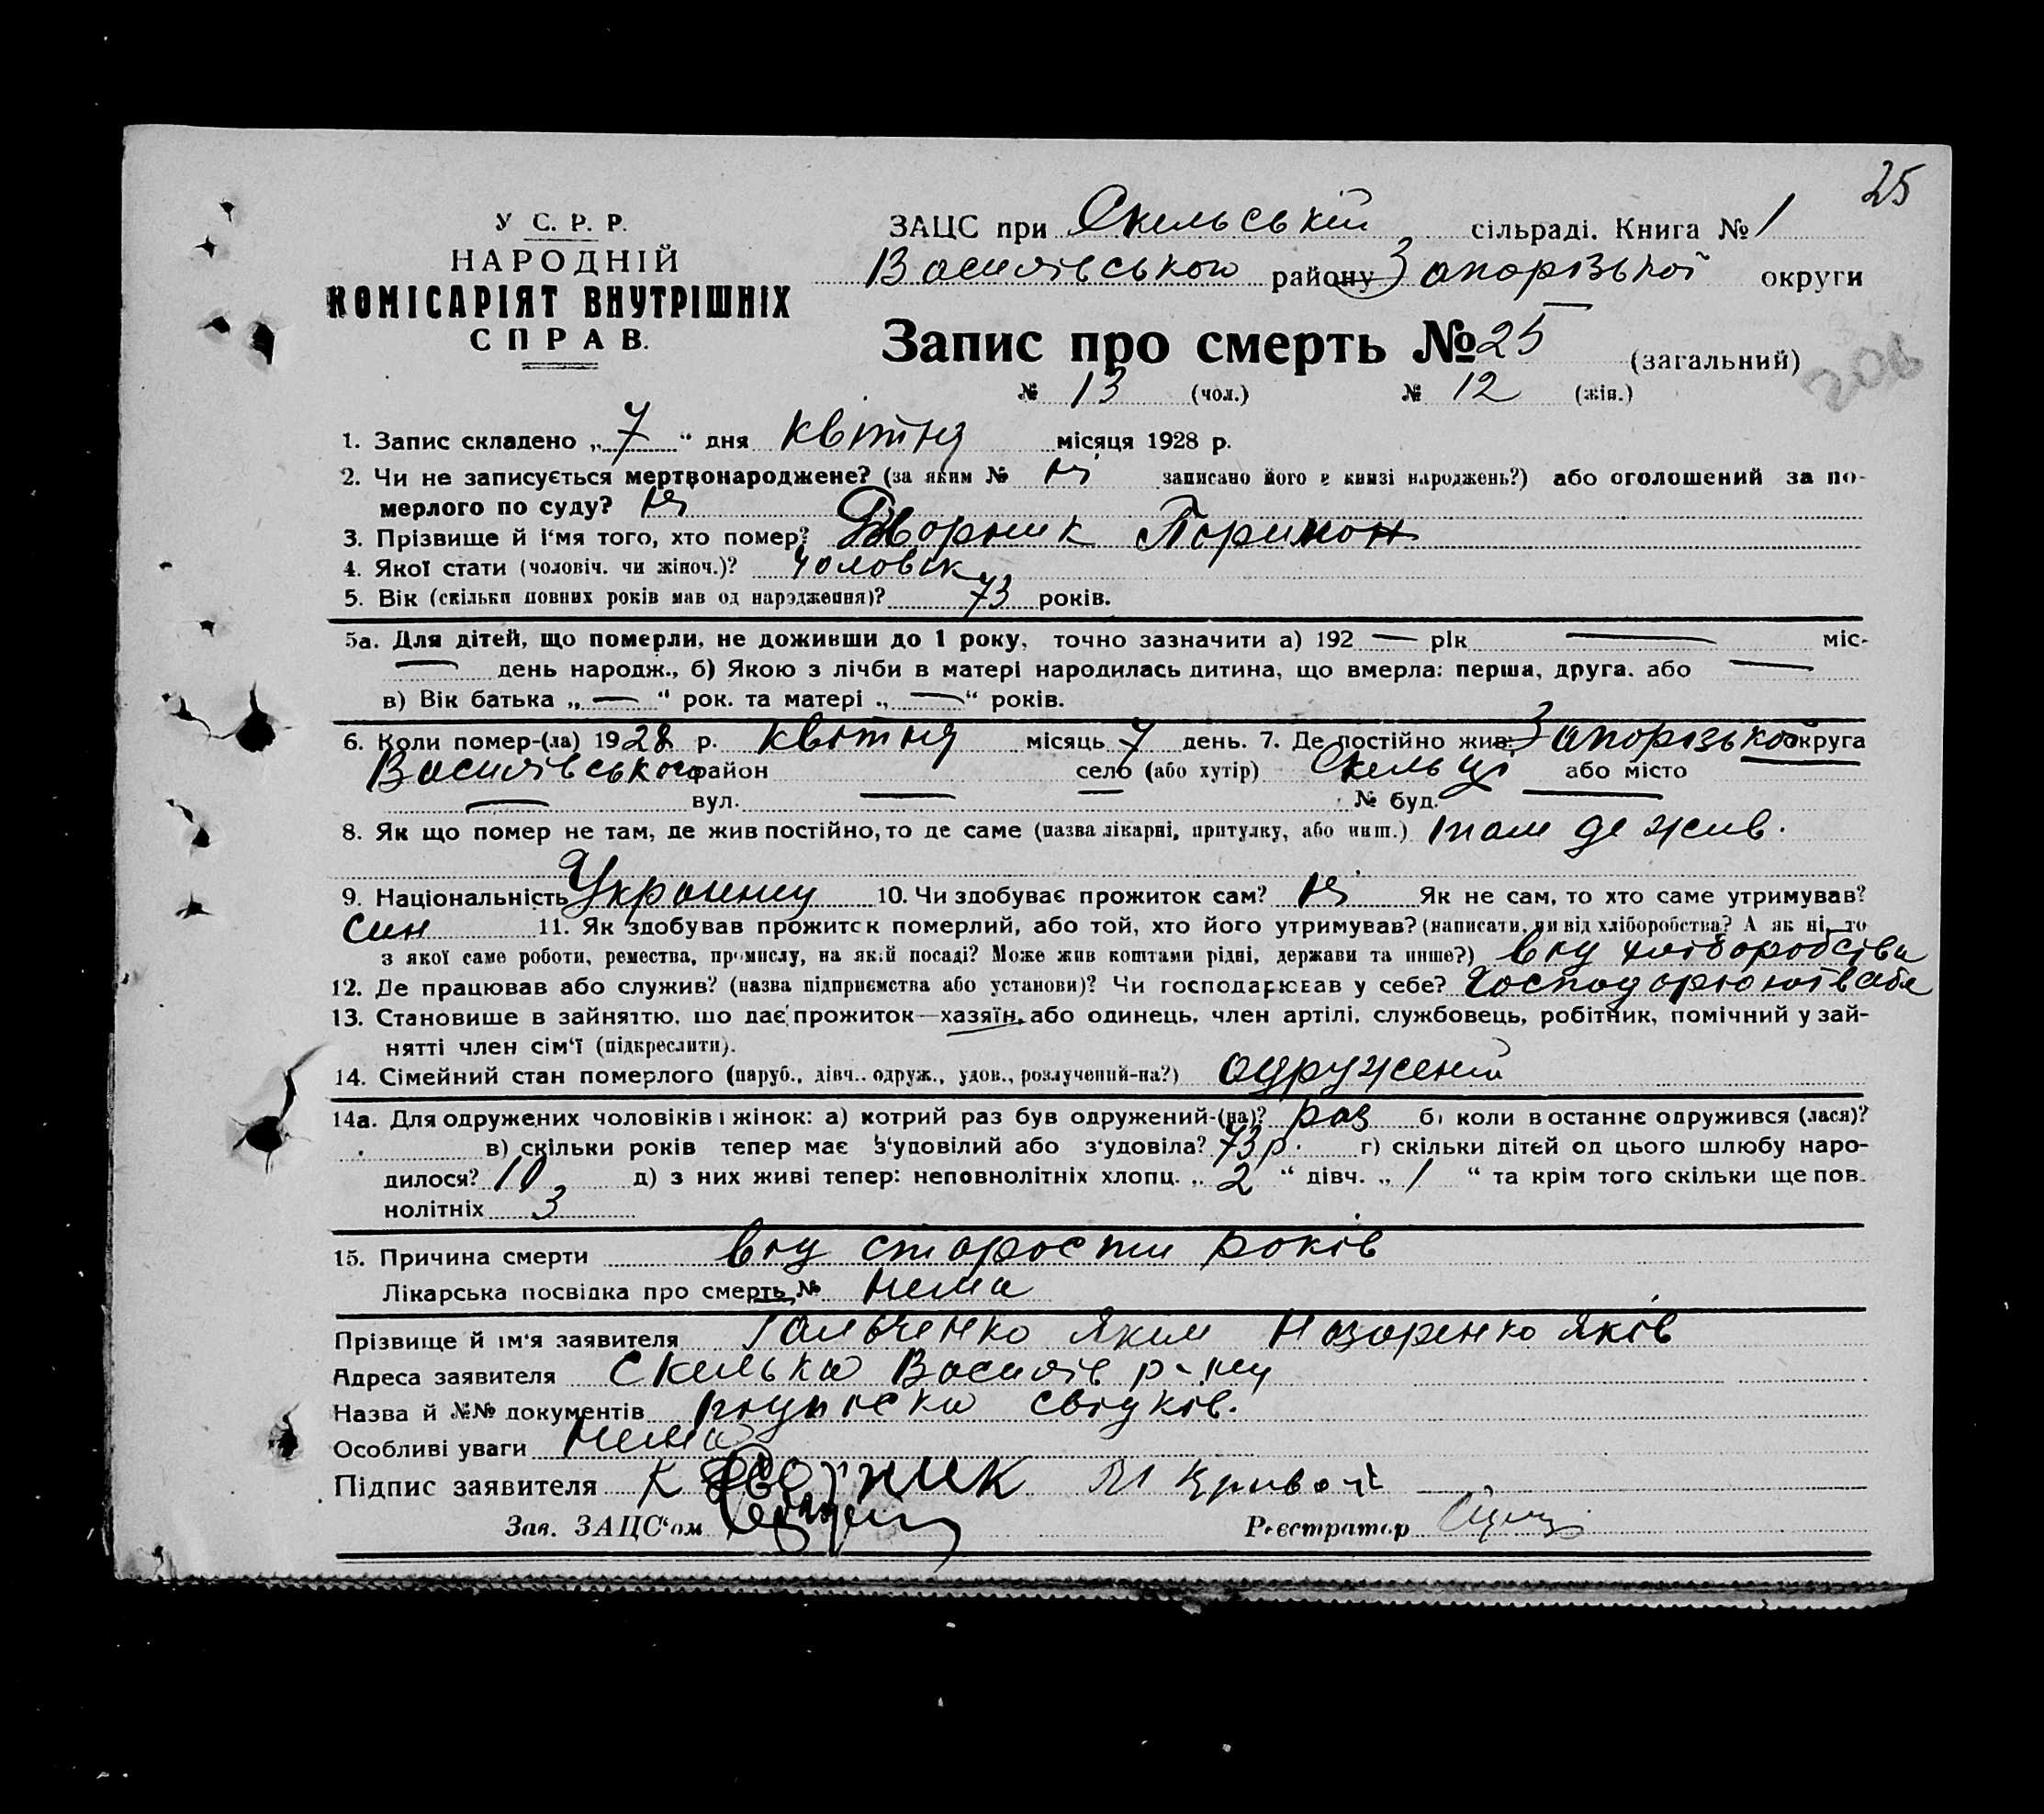 25
У С. Р. Р.
НАРОДНІЙ
КОМІСАРІЯТ ВНУТРІШНІХ
СПРАВ.
ЗАЦС при Скельській сільраді. Книга № 1
Василівського району Запорізької округи
Запис про смерть № 25 (загальний)
206
№ 13 (чол.) № 12 (жін.)
1. Запис складено „ 7 “ дня квітня місяця 1928 р.
2. Чи не записується мертвонароджене? (за яким № ні записано його в книзі народжень?) або оголошений за по-
мерлого по суду? ні
3. Прізвище й і'мя того, хто помер? Дворник Паримон
4. Якої стати (чоловіч. чи жіноч.)? чоловік
5. Вік (скільки повних років мав од народження)? 73 років.
5а. Для дітей, що померли, не доживши до 1 року, точно зазначити а) 192 — рік — міс-
— день народж., б) Якою з лічби в матері народилась дитина, що вмерла: перша, друга. або —
в) Вік батька „ — “ рок. та матері „ — “ років.
6. Коли помер-(ла) 1928 р. квітня місяць 7 день. 7. Де постійно жив: Запорізької округа
Василівського район село (або хутір) Скельці або місто
— вул. — № буд. —
8. Як що помер не там, де жив постійно, то де саме (назва лікарні, притулку, або инш.) там де жив.
9. Національність Українец 10. Чи здобував прожиток сам? ні Як не сам, то хто саме утримував?
син 11. Як здобував прожиток померлий, або той, хто його утримував? (написати, чи від хліборобства? А як ні, то
з якої саме роботи, ремества, промислу, на якій посаді? Може жив коштами рідні, держави та инше?) від хліборобства
12. Де працював або служив? (назва підприємства або установи)? Чи господарював у себе? господорює
13. Становише в зайняттю, що дає прожиток—хазяїн, або одинець, член артілі, службовець, робітник, помічний у зай-
нятті член сім'ї (підкреслити).
14. Сімейний стан померлого (паруб., дівч.. одруж., удов., розлучений-на?) одружений
14а. Для одружених чоловіків і жінок: а) котрий раз був одружений-(на)? раз б) коли в останнє одружився (лася)?
в) скільки років тепер має з'удовілий або з'удовіла? 73 р. г) скільки дітей од цього шлюбу наро-
дилося? 10 д) з них живі тепер: неповнолітніх хлопц. „ 2 “ дівч. „ 1 “ та крім того скільки ще пов-
нолітніх 3
15. Причина смерти від старости років
Лікарська посвідка про смерть № нема
Прізвище й ім'я заявителя Гальченко Яким Назаренко Яків
Адреса заявителя Скелька Василів р-ну
Назва й №№ документів підписка свідків.
Особливі уваги нема
Підпис заявителя К Дворник
Зав. ЗАЦС'ом Реєстратор